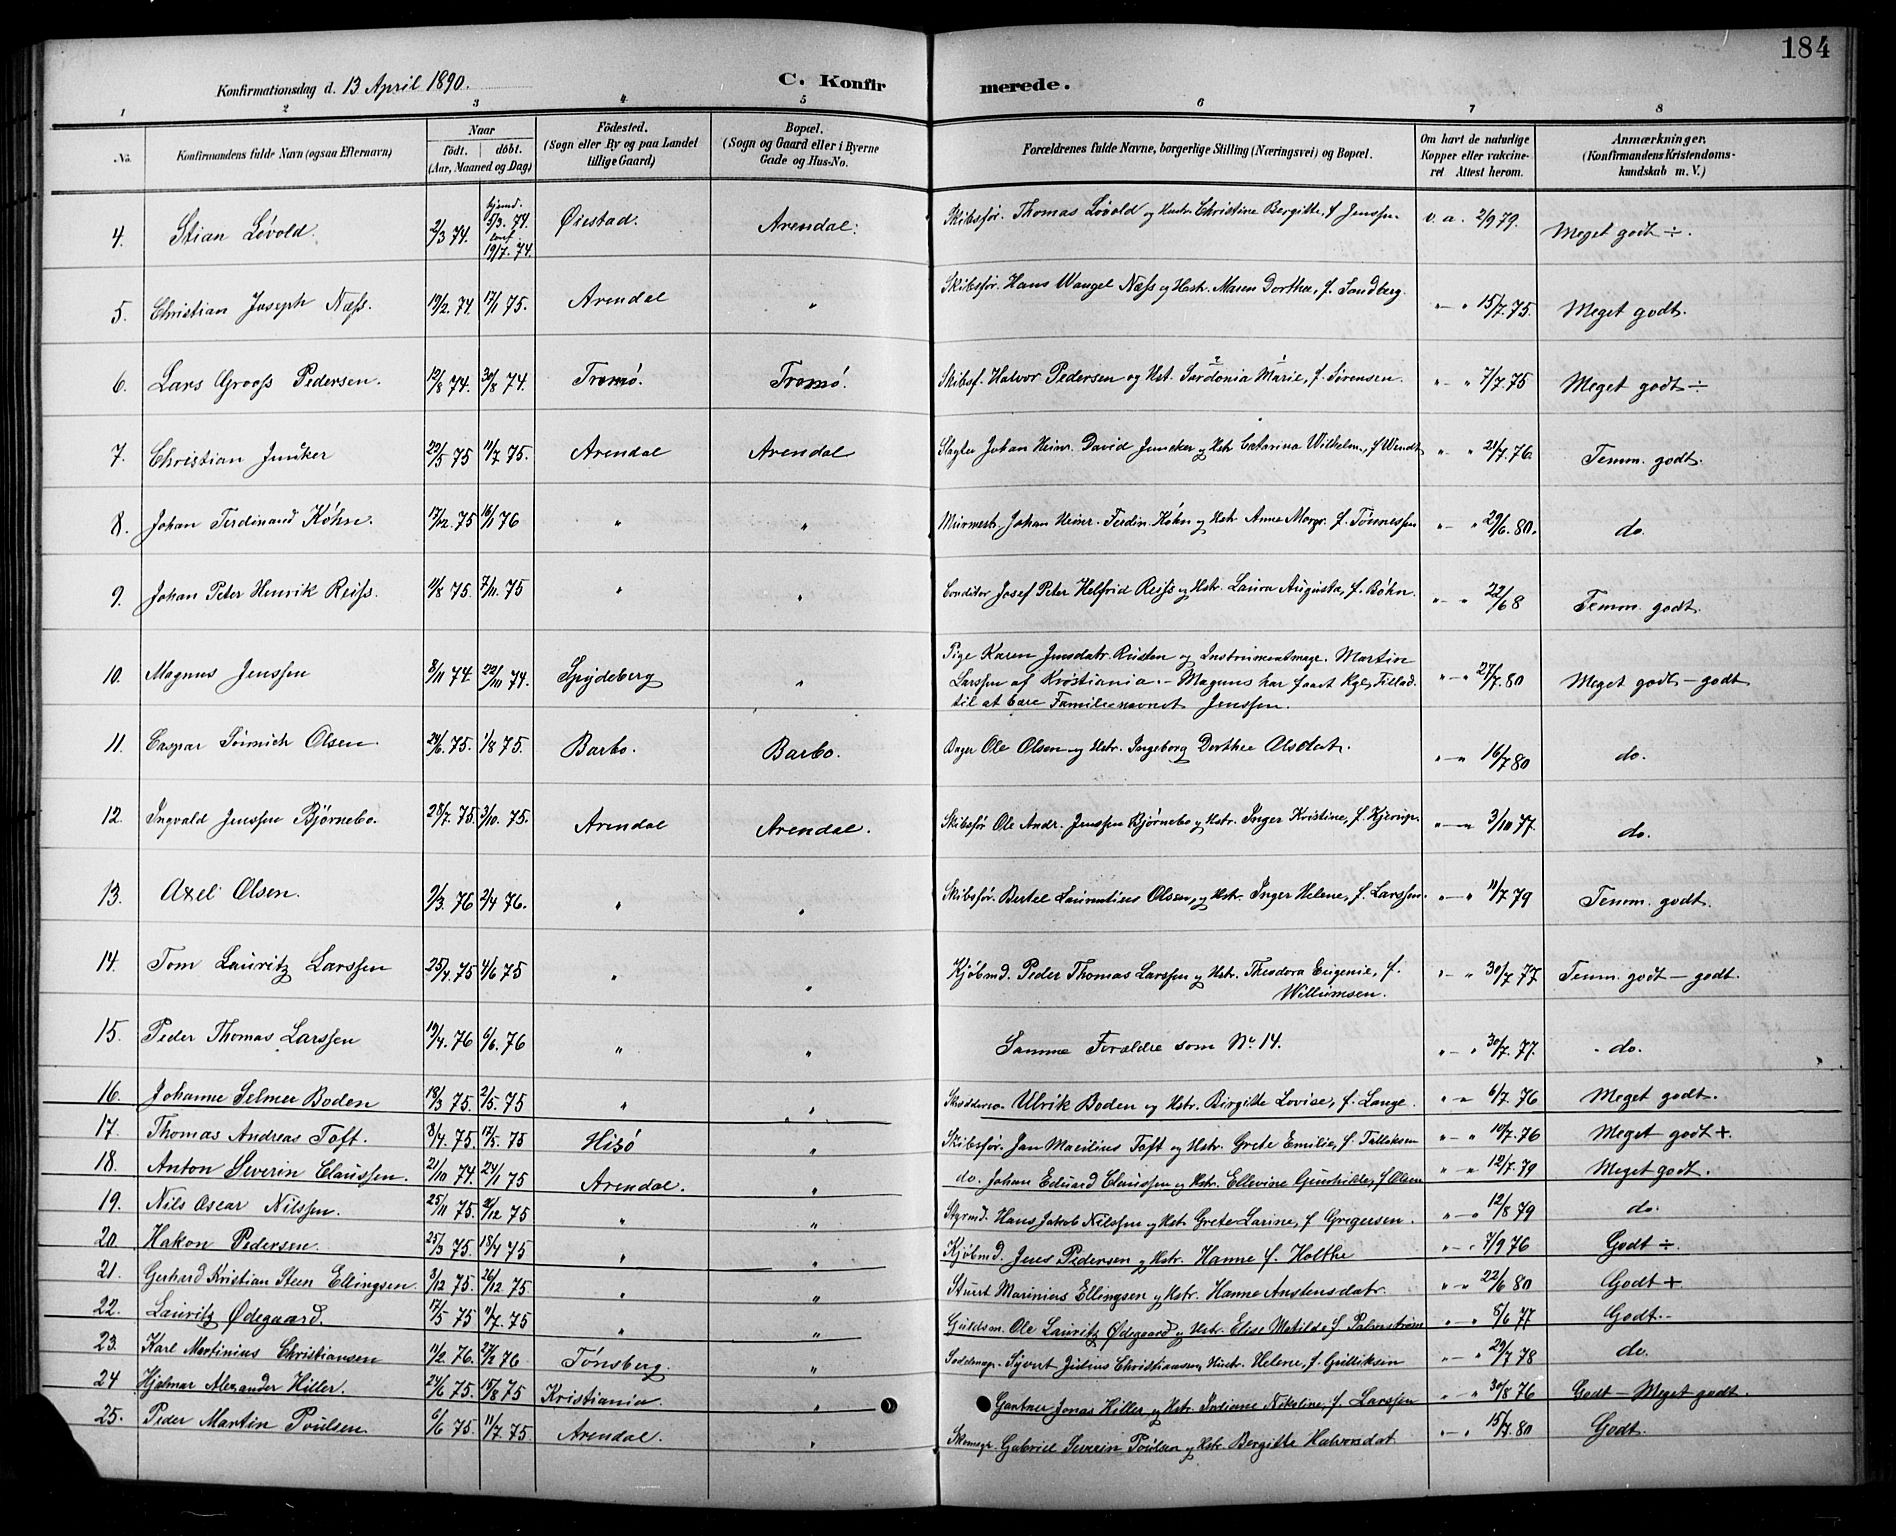 184
Konfirmationsdag d. 13 April 1890. C. Konfir merede.
1 2 3 4 5 6 7 8
No. Konfirmandens fulde Navn (ogsaa Efternavn) Naar födt. döbt. (Aar, Maaned og Dag) Födested. (Sogn eller By og paa Landet tillige Gaard) Bopæl. (Sogn og Gaard eller i Byerne Gade og Hus-No. Forældrenes fulde Navne, borgerlige Stilling (Næringsvei) og Bopæl. Om havt de naturlige Kopper eller vakcineret Attest herom. Anmærkninger. (Konfirmandens Kristendomskundskab m. V.)
4. Stian Løvold. 2/3 74. hjemd. 5/3. 74. 19/7. 74. Øiestad. Arendal. Skibsfør. Thomas Løvold og Hustr Christine Bergitte, f Jenssen. v. a. 2/9 79. Meget godt ÷.
5. Christian Joseph Næss. 19/2. 74. 17/1 75. Arendal " Skibsfør. Hans Wangel Næss og Hustr. Maren Dorthea, f. Sandberg. " - " 15/7. 75. Meget godt.
6. Lars Grooss Pedersen. 12/8 74. 30/8 74. Tromø. Tromø. Skibsf. Halvor Pedersen og Hst. Sardonia Marie, f. Sørensen. " - " 7/7. 75 Meget godt ÷
7. Christian Junker 23/5 75 11/7 75. Arendal Arendal Slagter Johan Heinr. David Juncker og Hstr Catarina Wilhelm., f Wendt " - " 21/7. 76. Temm. godt.
8. Johan Ferdinand Køhn. 17/12. 75 16/1 76 " " Murmest. Johan Heinr. Ferdin. Køhn og Hstr Anne Margr. f. Tønnessen " - " 29/6. 80. do.
9. Johan Peter Henrik Reiss. 11/8 75. 7/11. 75 " " Conditor Josef Peter Helfrid Reiss og Hstr. Laura Augusta, f. Bøhn. " - " 22/6 8 Temm. godt.
10. Magnus Jenssen 8/11 74. 22/11 74. Spydeberg " Pige Karen Jensdatr. Rusten og Instrumentmager. Martin
Larssen af Kristiania. - Magnus har faaet Kgl. Tillad. " - " 27/7. 80 Meget godt - godt
til at bære Familienavnet Jenssen.
11. Caspar Olsen. 24/6. 75. 1/8 75. Barbo. Barbo. Bager Ole Olsen og Hstr. Ingeborg Dorthee Alsdat. " - " 16/7 80 do.
12. Ingvald Jenssen Bjørnebo. 28/7. 75. 3/10. 75. Arendal Arendal. Skibsfør Ole Andr. Jenssen Bjørnebo og Hstr. Inger Kristine, f. Kjerup. " - " 3/10 77. do.
13. Axel Olsen. 9/3. 76 2/4 76. " " Skibsfør. Bertel Laurentius Olsen, og Hstr. Inger Helene, f. Larssen. " - " 11/7. 79 Temm. godt.
14. Tom Lauritz Larssen 25/4. 75 4/6 75 " " Kjøbmd. Peder Thomas Larssen og Hstr. Theodora Eugenie, f. " - " 30/7. 77 Temm. godt - godt.
Willumsen.
15. Peder Thomas Larssen 19/4. 76 6/6. 76 " " Samme Forældre som No. 14. " - " 30/7. 77. do.
16. Johanne Selmer Boden 18/3 75. 2/5. 75 " " Ulrik Boden og Hstr. Birgitte Lovise, f. Lange. " - " 6/7. 76 Meget godt.
17. Thomas Andreas Toft. 8/4. 75 17/5. 75 Hisø " Skibsfør. Jan Toft og Hstr. Grete Emilie, f. Tallaksen " - " 10/7. 76 Meget godt +.
18. Anton Severin Claussen. 21/10 74. 24/1 75 Arendal. " do. Johan Eduard Claussen og Hstr. Ellevine Gunhilde, f Olsen " - " 12/7. 79 Meget godt.
19. Nils Oscar Nilssen. 25/11 75. 31/12 75 " " Styrmd. Hans Jakob Nilssen og Hstr Grete Larine, f Gregersen. " - " 12/8 79 do.
20 Hakon Pedersen. 25/3 75 18/4 75 " " Kjøbmd. Jens Pedersen og Hstr. Hanne f. Holthe " - " 7/9 76 Godt ÷.
21. Gerhard Kristian Steen Ellingsen. 3/12 75. 26/12 75 " " Stuert Marinius Ellingsen og Hstr. Hanne Anstensdatr. " - " 22/6 80 Godt +
22. Lauritz Ødegaard. 17/5 75 11/7. 75 " " Guldsm. Ole Lauritz Ødegaard og Hstr. Elise Matilde f Palmstrøm " - " 8/6 77 Godt.
23. Karl Martinius Christiansen 11/2. 76. 27/2 76 Tønsberg. " Sadelmagr. Syvert Julius Christiansen og Hustr. Helene, f. Gulliksen " - " 29/7 78 do.
24 Hjalmar Alexander Hiller. 24/6 75. 15/8 75 Kristiania. " Gartner Jonas Hiller og Hstr. Indiane Nikoline, f. Larssen " - " 30/8 76 Godt - Meget godt.
25. Peder Martin Poulsen. 6/6 75. 11/7. 75. Arendal. " Skomagr. Gabriel Severin Poulsen og Hstr Bergitte Halvorsdat " - " 15/7. 80 Godt.